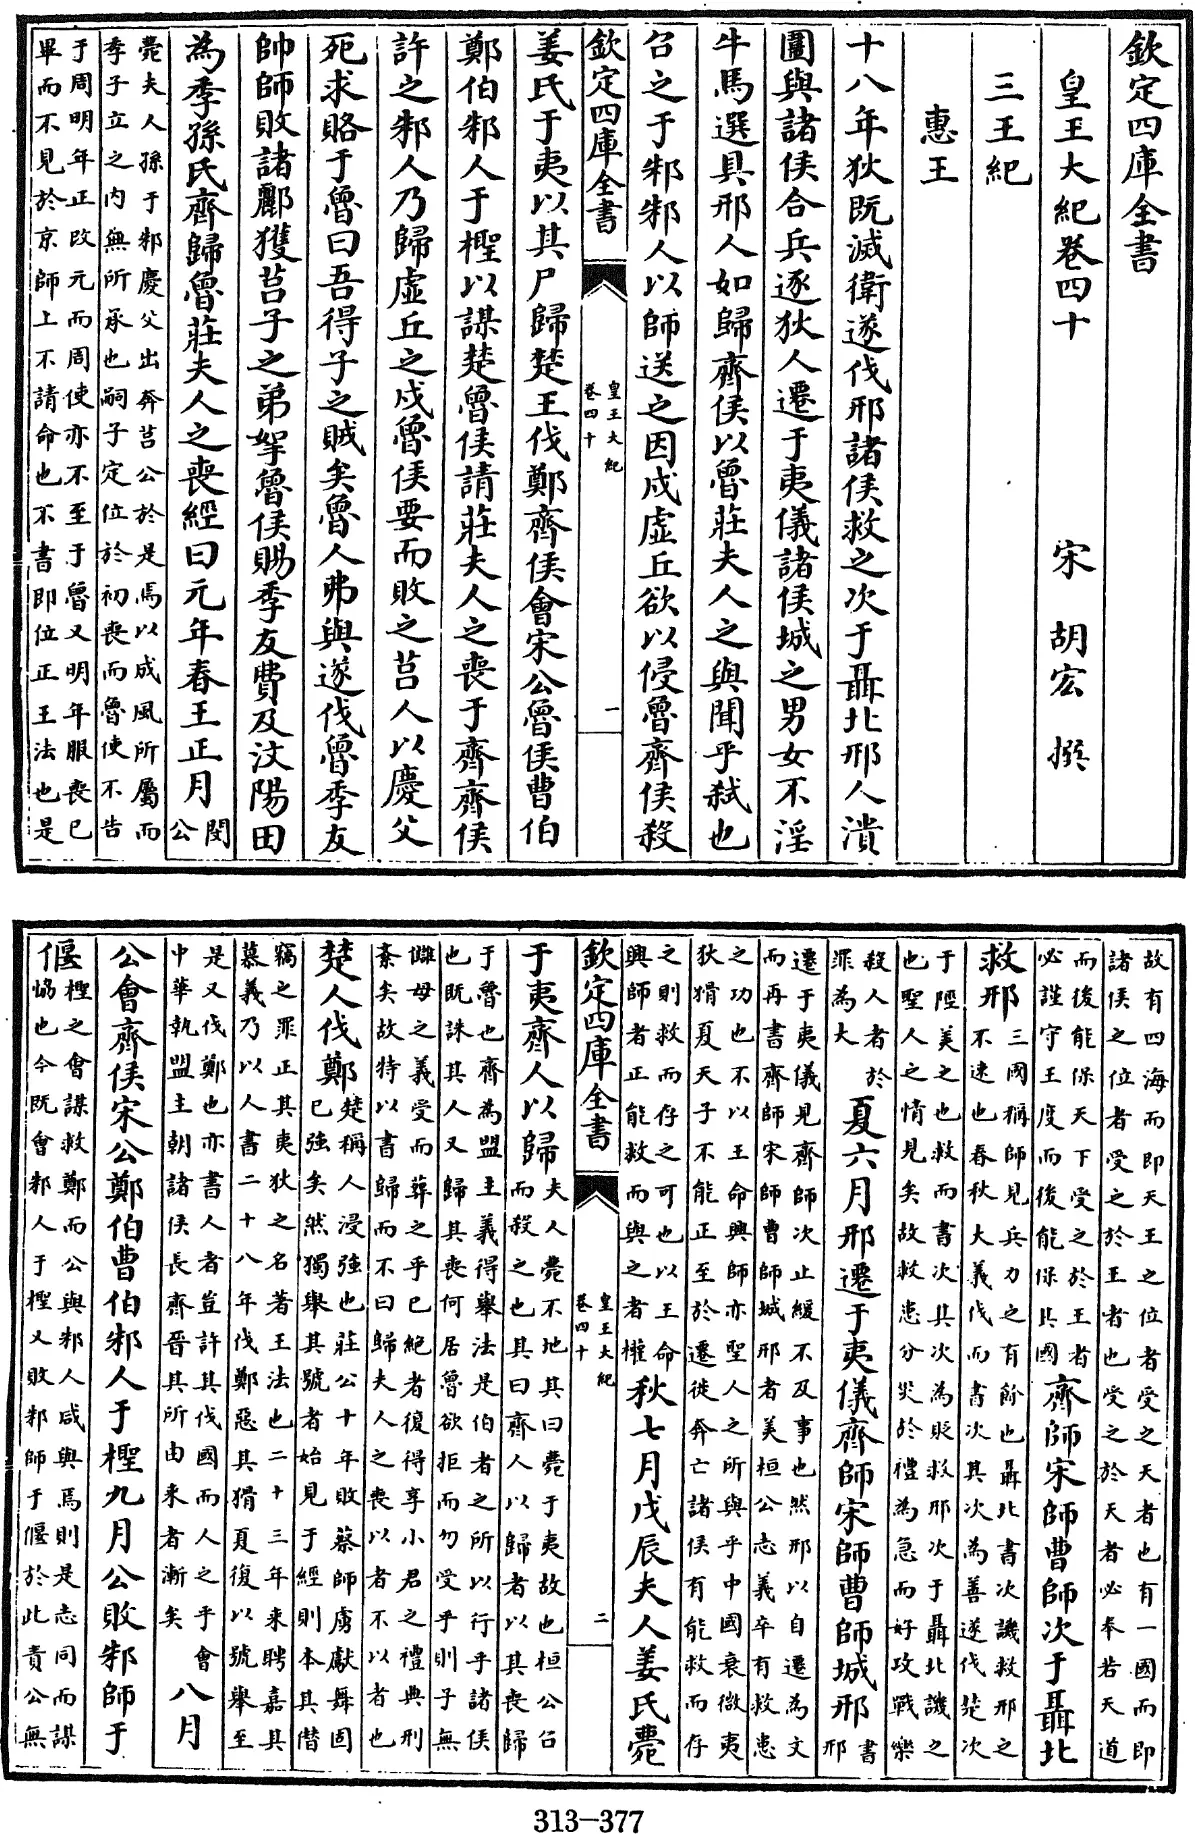 欽定四庫全書
皇王大紀卷四十　宋　胡宏　撰
三王紀
惠王
十八年狄既滅衛遂伐邢諸侯救之次于聶北邢人潰
圍與諸侯合兵逐狄人遷于夷儀諸侯城之男女不淫
牛馬選具邢人如歸齊侯以魯莊夫人之與聞乎弑也
召之于邾邾人以師送之因戍虛丘欲以侵魯齊侯殺
欽定四庫全書
皇王大紀
卷四十
一
姜氏于夷以其尸歸楚王伐鄭齊侯會宋公魯侯曹伯
鄭伯邾人于檉以謀楚魯侯請莊夫人之喪于齊齊侯
許之邾人乃歸虛丘之戍魯侯要而敗之莒人以慶父
死求賂于魯曰吾得子之賊矣魯人弗與遂伐魯季友
帥師敗諸酈獲莒子之弟挐魯侯賜季友費及汶陽田
為季孫氏齊歸魯莊夫人之喪經曰元年春王正月閔公
薨夫人孫于邾慶父出奔莒公於是焉以成風所屬而
季子立之內無所承也嗣子定位於初喪而魯使不告
于周明年正改元而周使亦不至于魯又明年服喪已
畢而不見於京師上不請命也不書即位正王法也是
故有四海而即天王之位者受之天者也有一國而即
諸侯之位者受之於王者也受之於天者必奉若天道
而後能保天下受之於王者
必謹守王度而後能保其國
齊師宋師曹師次于聶北
救邢
三國稱師見兵力之有餘也聶北書次譏救邢之
不速也春秋大義伐而書次其次為善遂伐楚次
于陘美之也救而書次其次為貶救邢次于聶北譏之
也聖人之情見矣故救患分災於禮為急而好攻戰樂
殺人者於
罪為大
夏六月邢遷于夷儀齊師宋師曹師城邢
書
邢
遷于夷儀見齊師次止緩不及事也然邢以自遷為文
而再書齊師宋師曹師城邢者美桓公志義卒有救患
之功也不以王命興師亦聖人之所與乎中國衰微夷
狄猾夏天子不能正至於遷徙奔亡諸侯有能救而存
之則救而存之可也以王命
興師者正能救而與之者權
秋七月戊辰夫人姜氏薨
欽定四庫全書
皇王大紀
卷四十
二
于夷齊人以歸
夫人薨不地其曰薨于夷故也桓公召
而殺之也其曰齊人以歸者以其喪歸
于魯也齊為盟主義得舉法是伯者之所以行乎諸侯
也既誅其人又歸其喪何居魯欲拒而勿受乎則子無
讎母之義受而葬之乎已絕者復得享小君之禮典刑
紊矣故特以書歸而不曰歸夫人之喪以者不以者也
楚人伐鄭
楚稱人浸強也莊公十年敗蔡師虜獻舞固
已強矣然獨舉其號者始見于經則本其僭
竊之罪正其夷狄之名著王法也二十三年來聘嘉其
慕義乃以人書二十八年伐鄭惡其猾夏復以號舉至
是又伐鄭也亦書人者豈許其伐國而人之乎會
中華執盟主朝諸侯長齊晉其所由來者漸矣
八月
公會齊侯宋公鄭伯曹伯邾人于檉九月公敗邾師于
偃
檉之會謀救鄭而公與邾人咸與焉則是志同而謀
恊也今既會邾人于檉又敗邾師于偃於此責公無
313-377